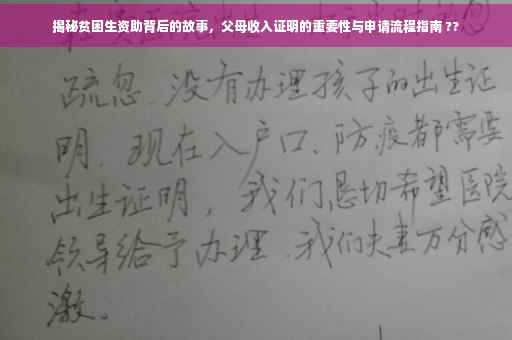 揭秘贫困生资助背后的故事，父母收入证明的重要性与申请流程指南 ??
疏忽、没有办理孩子的出生证
明。现在入户口、防疫都需要
出生证明，我们恳切希望医院
领导给予办理、我们夫妻万分感
激。